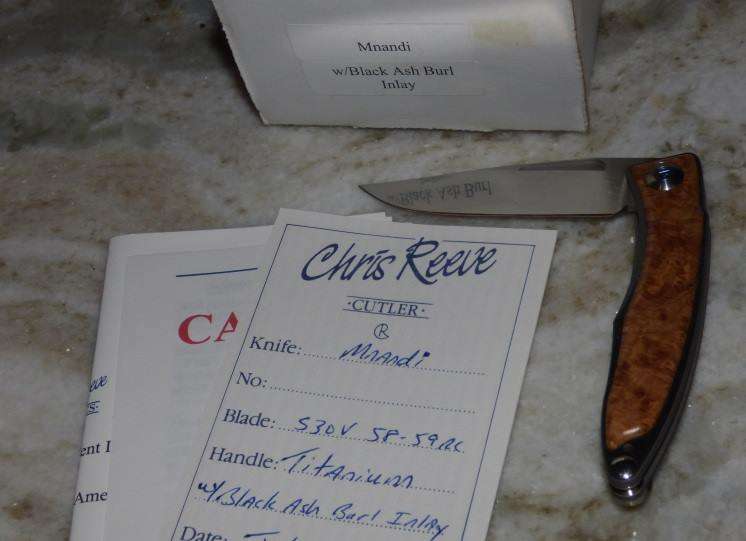 Mnandi
w/Black Ash Burl
Inlay
Black Ash Burl
Chris Reeve
·CUTLER·
®
Knife: Mnandi
No:
Blade: S30V 58-59 RC
Handle: Titanium
w/Black Ash Burl Inlay
Date:
CA
eve
ent I
Ame